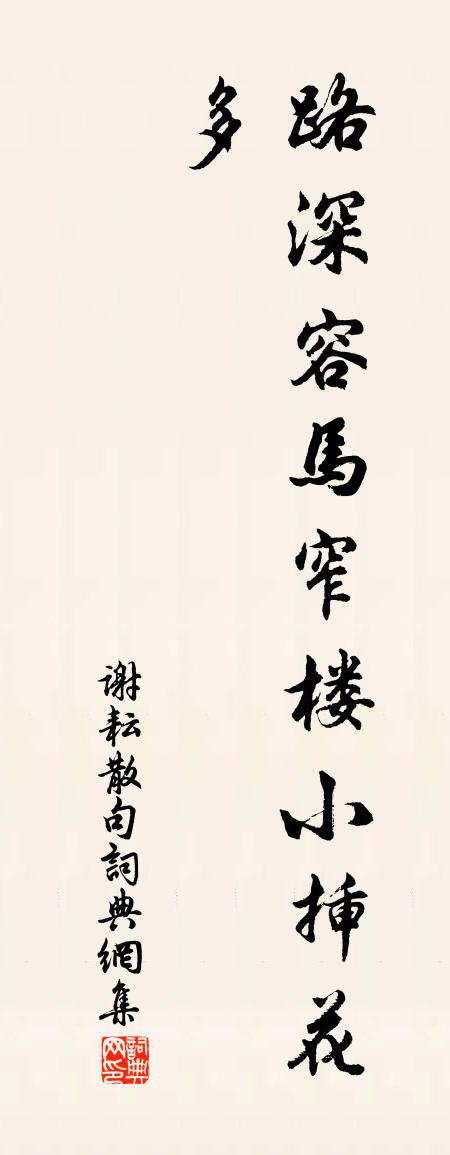 路深容馬窄楼小挿花
多
謝耘散句詞典網集
詞典网印